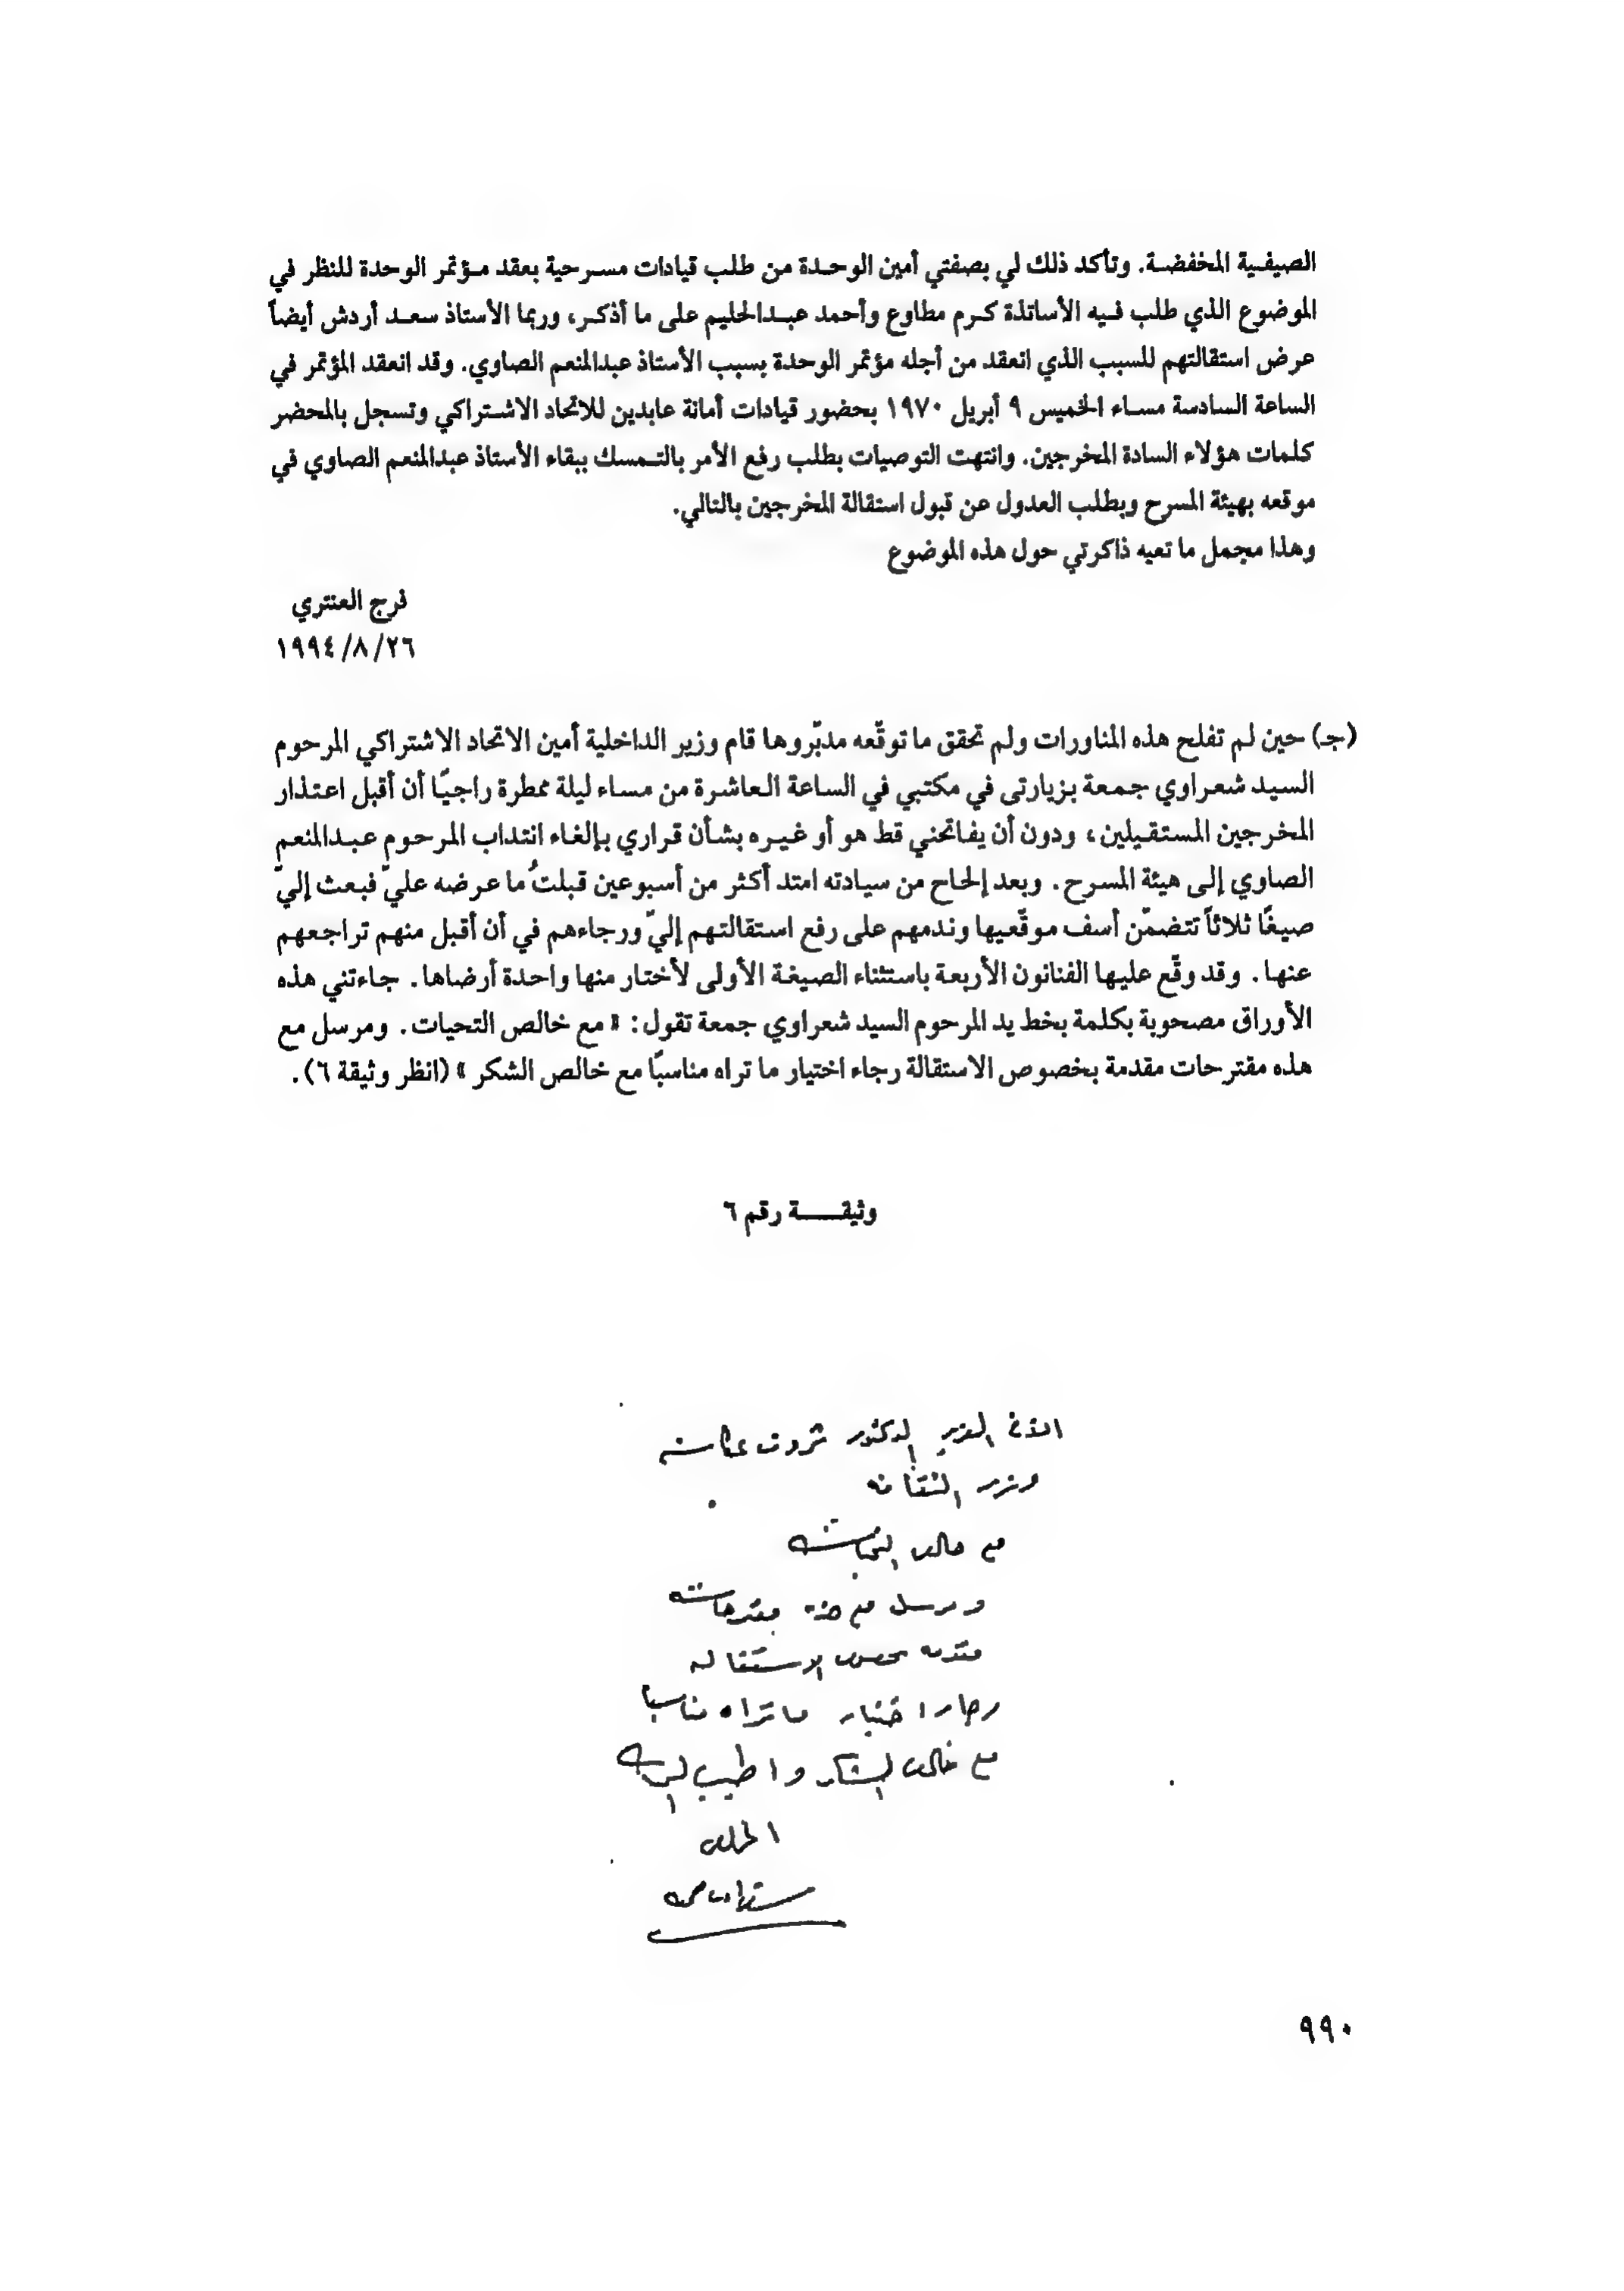 الصيفية المخفضة. وتأكد ذلك لي بصفتي أمين الوحدة من طلب قيادات مسرحية بعقد مؤتمر الوحدة للنظر في
الموضوع الذي طلب فيه الأساتذة كرم مطاوع وأحمد عبدالحليم على ما أذكر، وربما الأستاذ سعد أردش أيضاً
عرض استقالتهم للسبب الذي انعقد من أجله مؤتمر الوحدة بسبب الأستاذ عبدالمنعم الصاوي. وقد انعقد المؤتمر في
الساعة السادسة مساء الخميس ٩ أبريل ١٩٧٠ بحضور قيادات أمانة عابدين للاتحاد الاشتراكي وتسجل بالمحضر
كلمات هؤلاء السادة المخرجين. وانتهت التوصيات بطلب رفع الأمر بالتمسك ببقاء الأستاذ عبدالمنعم الصاوي في
موقعه بهيئة المسرح وبطلب العدول عن قبول استقالة المخرجين بالتالي.
وهذا مجمل ما تعيه ذاكرتي حول هذه الموضوع
فرج العنتري
١٩٩٤/٨/٢٦
(جـ) حين لم تفلح هذه المناورات ولم تحقق ما توقّعه مدبّروها قام وزير الداخلية أمين الاتحاد الاشتراكي المرحوم
السيد شعراوي جمعة بزيارتى في مكتبي في الساعة العاشرة من مساء ليلة ممطرة راجيًا أن أقبل اعتذار
المخرجين المستقيلين، ودون أن يفاتحني قط هو أو غيره بشأن قراري بإلغاء انتداب المرحوم عبدالمنعم
الصاوي إلى هيئة المسرح. وبعد إلحاح من سيادته امتد أكثر من أسبوعين قبلتُ ما عرضه عليّ فبعث إليّ
صيغًا ثلاثاً تتضمّن أسف موقّعيها وندمهم على رفع استقالتهم إليّ ورجاءهم في أن أقبل منهم تراجعهم
عنها. وقد وقّع عليها الفنانون الأربعة باستثناء الصيغة الأولى لأختار منها واحدة أرضاها. جاءتني هذه
الأوراق مصحوبة بكلمة بخط يد المرحوم السيد شعراوي جمعة تقول: « مع خالص التحيات. ومرسل مع
هذه مقترحات مقدمة بخصوص الاستقالة رجاء اختيار ما تراه مناسبًا مع خالص الشكر » (انظر وثيقة ٦).
وثيقـــــة رقم ٦
الأخ العزيز الدكتور ثروت عكاشه
وزير الثقافه
مع خالص التحيات
ومرسل مع هذه مقترحات
مقدمه بخصوص الاستقاله
رجاء اختيار ما تراه مناسبا
مع خالص الشكر واطيب
المخلص
شعراوى جمعه
٩٩٠